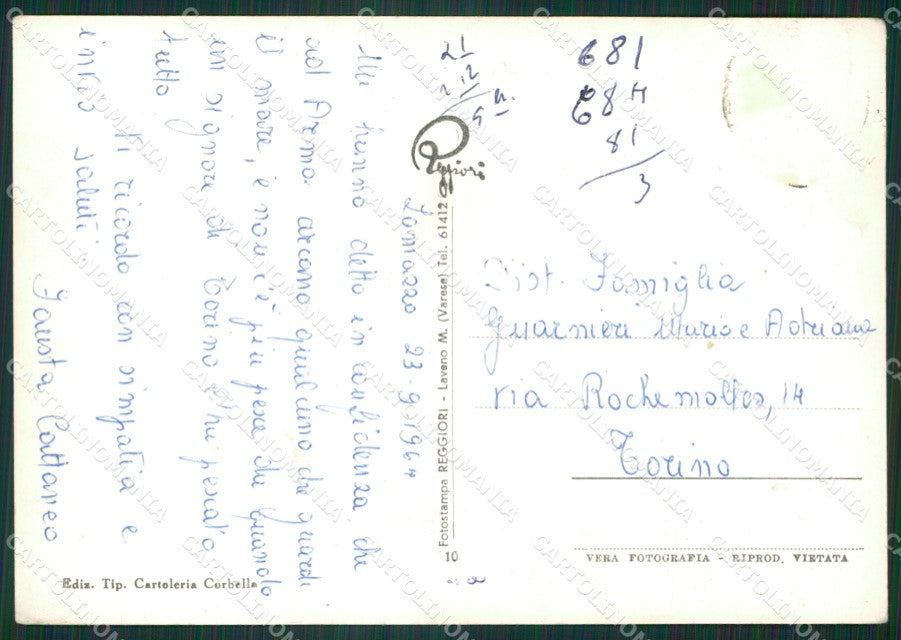 Lomazzo 23-9-1964
Mi hanno detto in confidenza che
ad Arma arcano qualcuno che guardi
il mare, e non c'è più pesce da quando
un signore di Torino l'ha pescato
tutto
Vi ricordo con simpatia e
invio saluti
Fausta Cattaneo
21
12
681
684
81
3
Reggiori
Fotostampa REGGIORI - Laveno M. (Varese) Tel. 61412
10
Dist. Famiglia
Guarnieri Mario e Adriana
via Rochemolles, 14
Torino
VERA FOTOGRAFIA - RIPROD. VIETATA
Ediz. Tip. Cartoleria Corbella
CARTOLINOMANIA